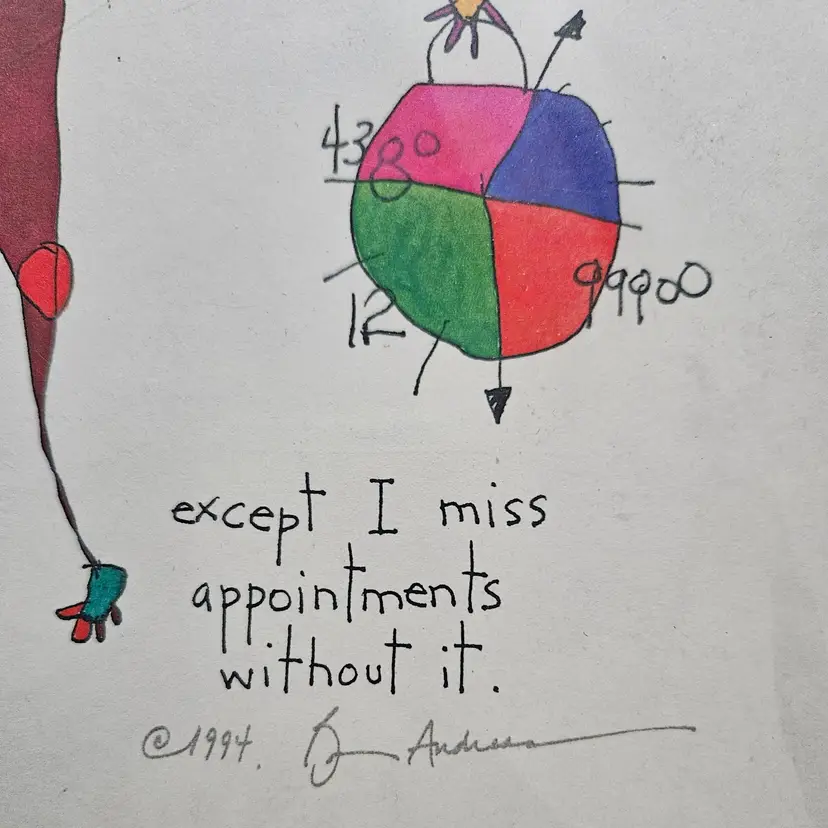 438°
12
99900
except I miss
appointments
without it.
©1994. Andreas